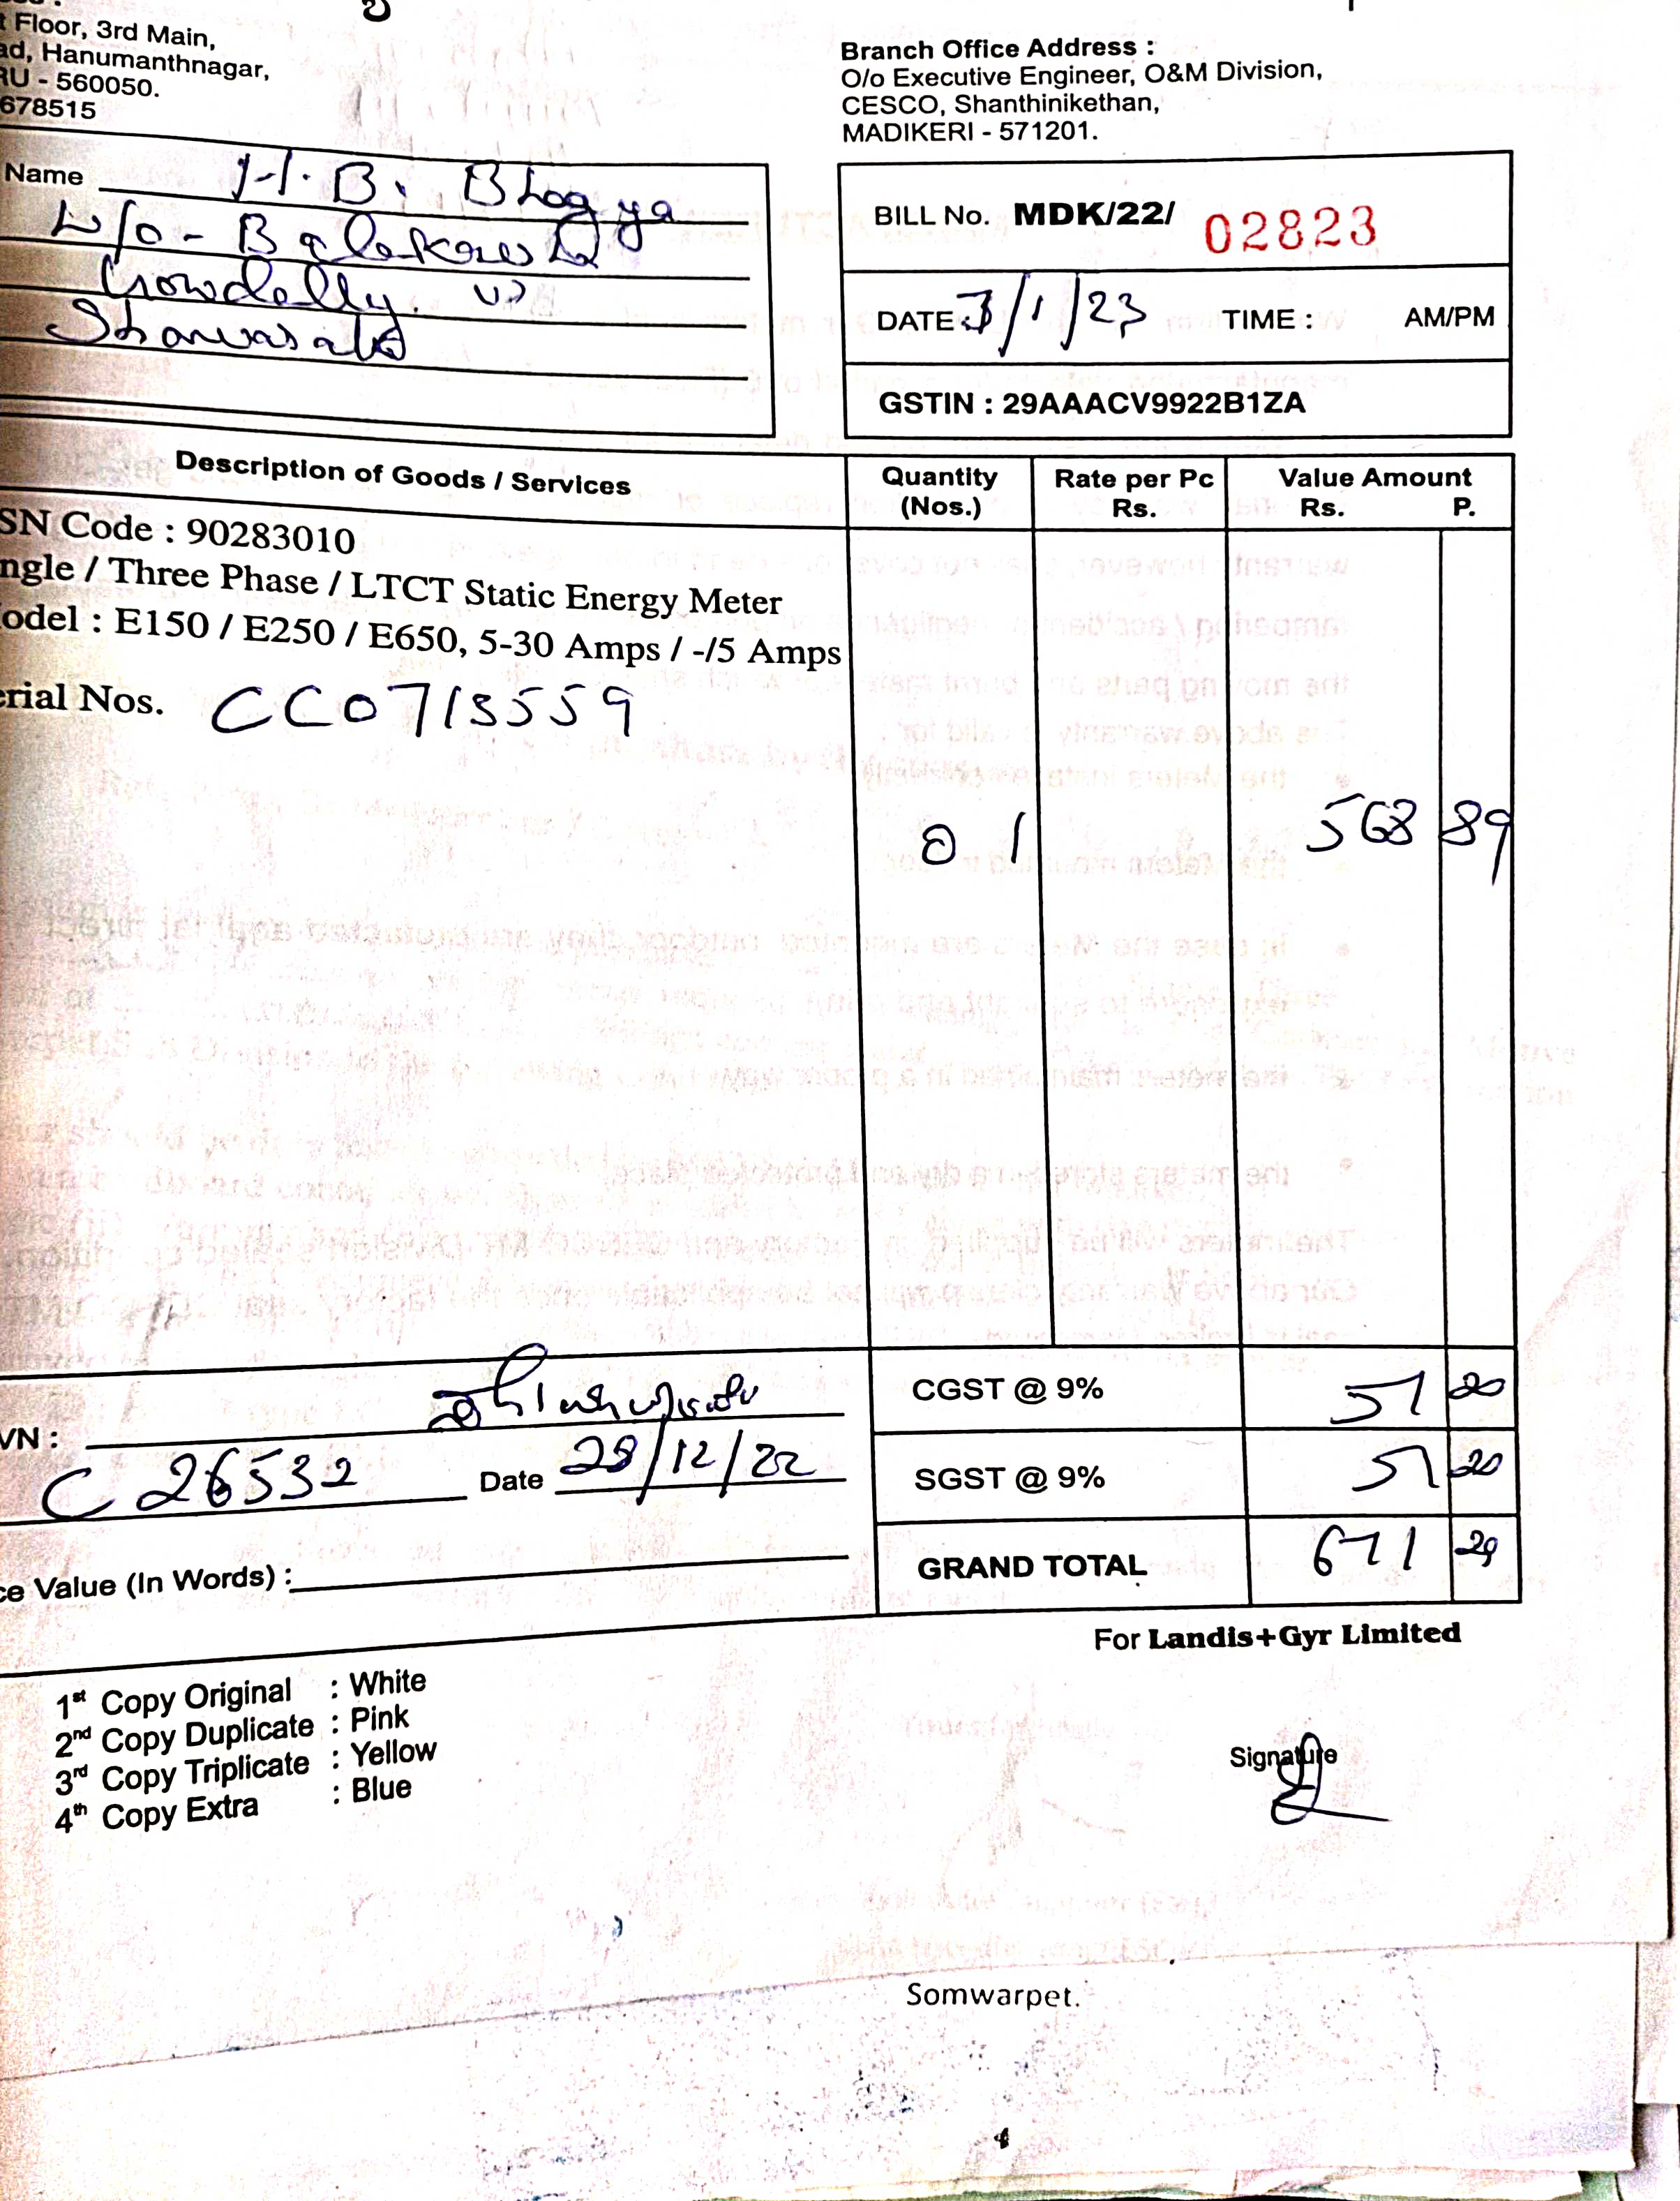 t Floor, 3rd Main,
ad, Hanumanthnagar,
RU - 560050.
678515
Branch Office Address :
O/o Executive Engineer, O&M Division,
CESCO, Shanthinikethan,
MADIKERI - 571201.
Name H. B. Bhagya
W/o - Balakrishna
Gowdally
BILL No. MDK/22/ 02823
DATE 3/1/23 TIME : AM/PM
GSTIN : 29AAACV9922B1ZA
Description of Goods / Services Quantity (Nos.) Rate per Pc Rs. Value Amount Rs. P.
SN Code : 90283010
ngle / Three Phase / LTCT Static Energy Meter
odel : E150 / E250 / E650, 5-30 Amps / -/5 Amps
erial Nos. CC0713559
01 568 89
CGST @ 9% 51 20
VN :
C 26532 Date 28/12/22
SGST @ 9% 51 20
GRAND TOTAL 671 29
ce Value (In Words) :
For Landis+Gyr Limited
1st Copy Original : White
2nd Copy Duplicate : Pink
3rd Copy Triplicate : Yellow
4th Copy Extra : Blue
Signature
Somwarpet.